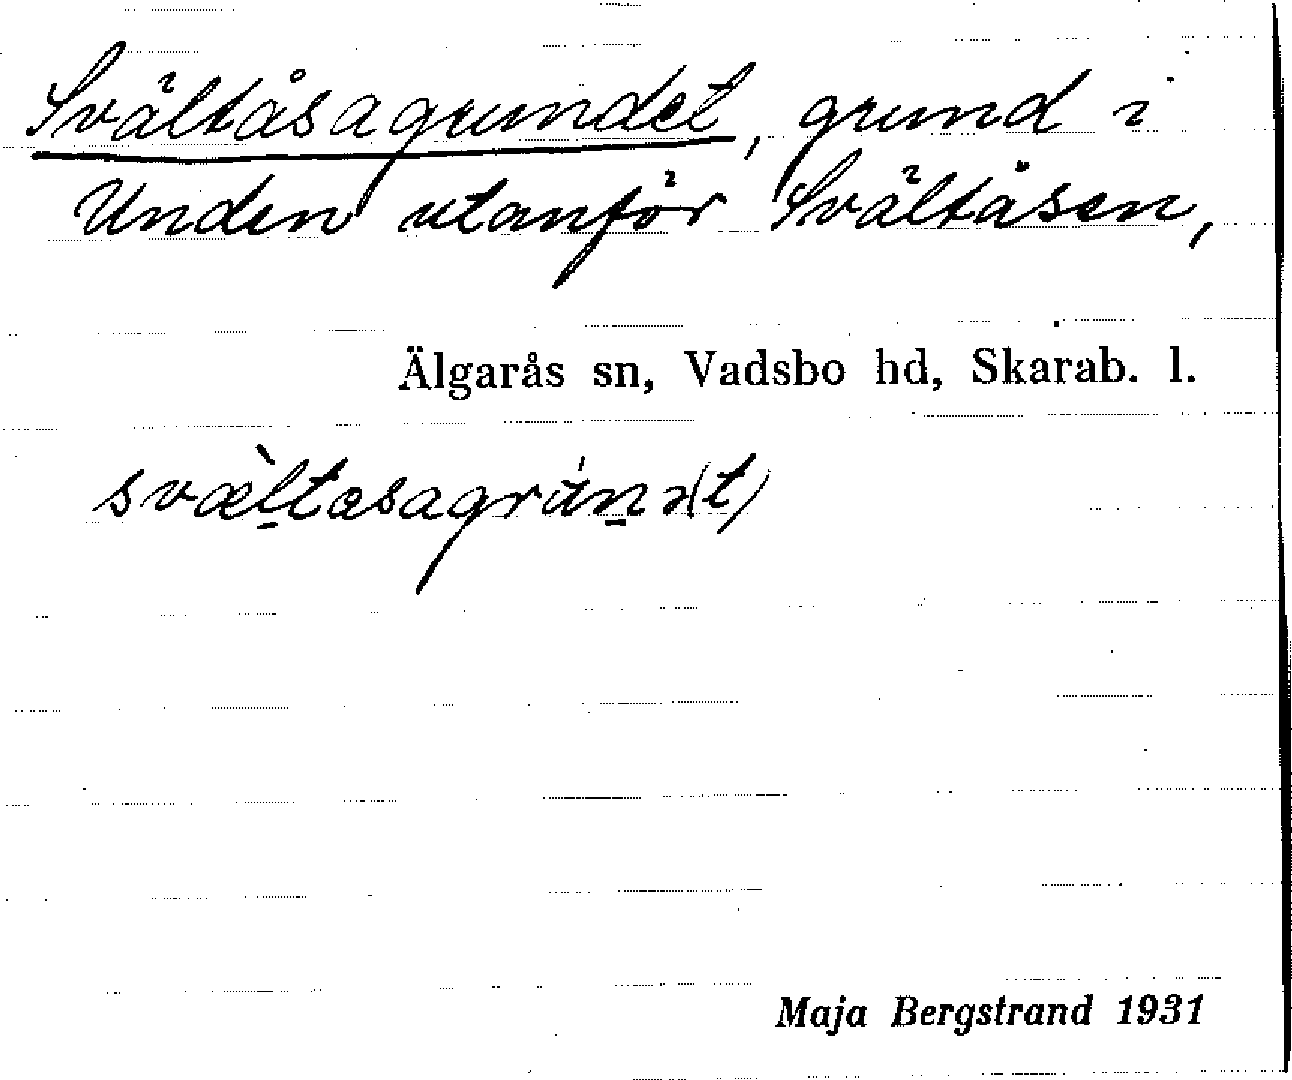 Svältåsagrundet, grund i
Unden utanför Svältåsen,
Älgarås sn, Vadsbo hd, Skarab. l.
Maja Bergstrand 1931